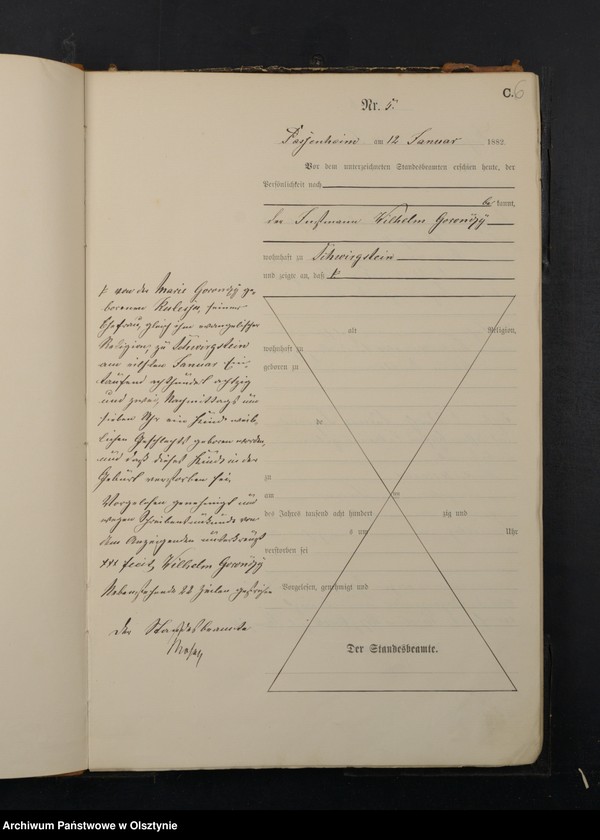 C. 6
Nr. 5.
Passenheim am 12 Januar 1882.
Vor dem unterzeichneten Standesbeamten erschien heute, der
Persönlichkeit nach
be kannt,
der Instmann Wilhelm Goronzÿ
wohnhaft zu Schwirgstein
und zeigte an, daß
von der Marie Goronzÿ ge-
borenen Kulessa, seiner
Ehefrau, gleich ihm evangelischer
Religion, zu Schwirgstein
am elften Januar Ein-
tausend achthundert achtzig
und zwei, Nachmittags um
sieben Uhr ein Kind weib-
lichen Geschlechts geboren worden,
und daß dieses Kind in der
Geburt verstorben sei.
Vorgelesen genehmigt und
wegen Schreibensunkunde von
dem Anzeigenden unterkreuzt
+++ fecit, Wilhelm Goronzÿ
Nebenstehende 22 Zeilen gestrichen
Der Standesbeamte
alt Religion,
wohnhaft zu
geboren zu
de
zu
am
des Jahres tausend acht hundert zig und
s um Uhr
verstorben sei
Vorgelesen, genehmigt und
Der Standesbeamte.
Archiwum Państwowe w Olsztynie